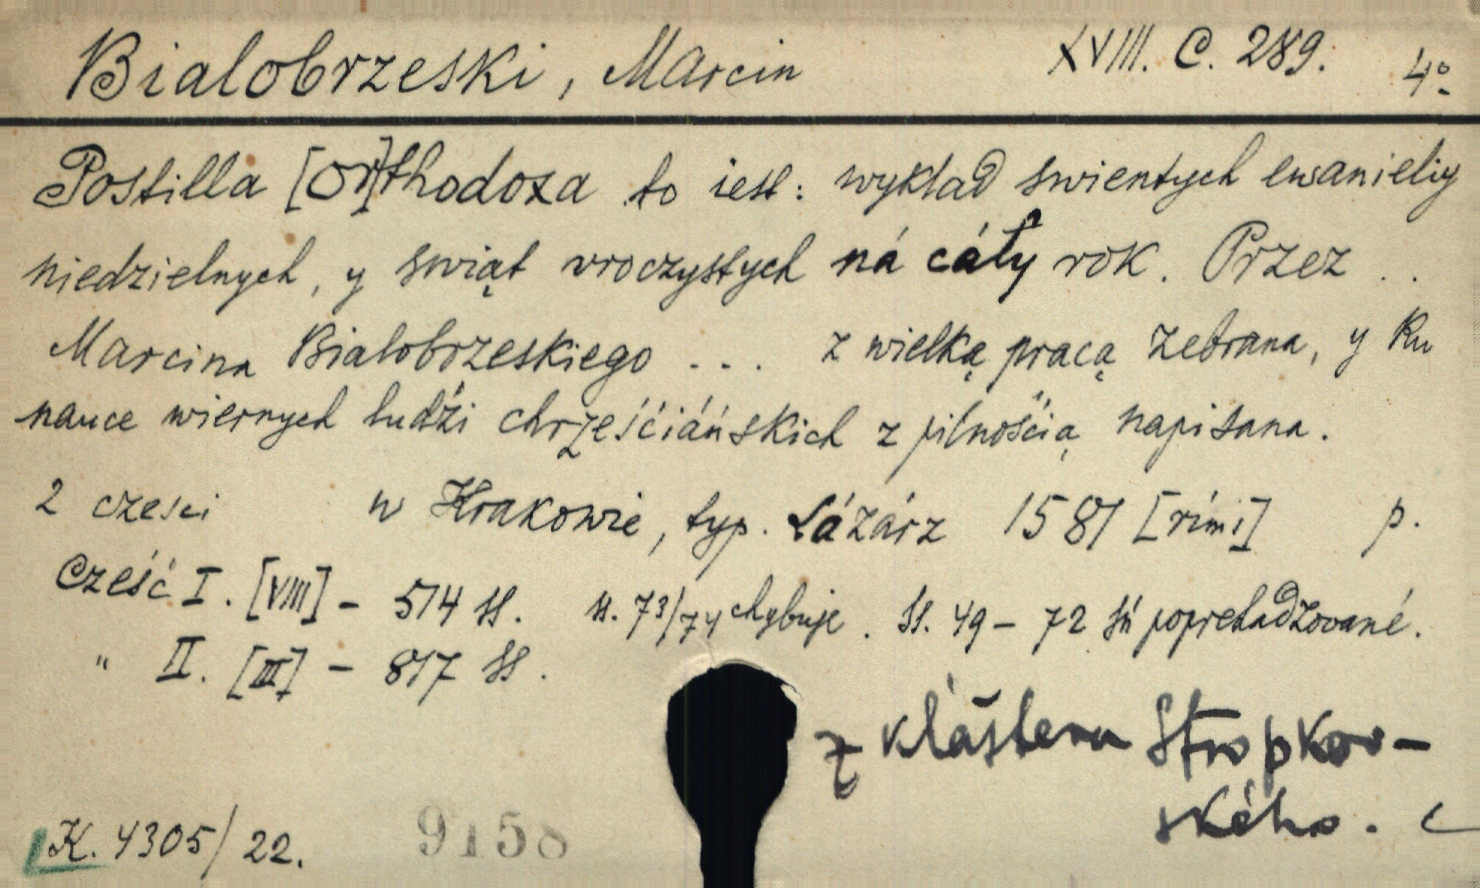 Bialobrzeski, Marcin XVIII. C. 289. 4°
Postilla [Or]thodoxa to iest: wykład swientych ewanieliy
niedzielnych, y swiąt vroczystych ná cáły rok. Przez ..
Marcina Białobrzeskiego ... z wielką pracą zebrana, y ku
nauce wiernych ludźi chrześćiáńskich z pilnośćią napisana.
2 czesci w Krakowie, typ. Łázárz 1581 [rími] p.
Cześć I. [VIII] - 514 ss. ss. 73/74 chybuje. ss. 49 - 72 sú poprehadzované.
" II. [III] - 817 ss.
z kláštera Stropkov-
ského.
K. 4305/22. 9158